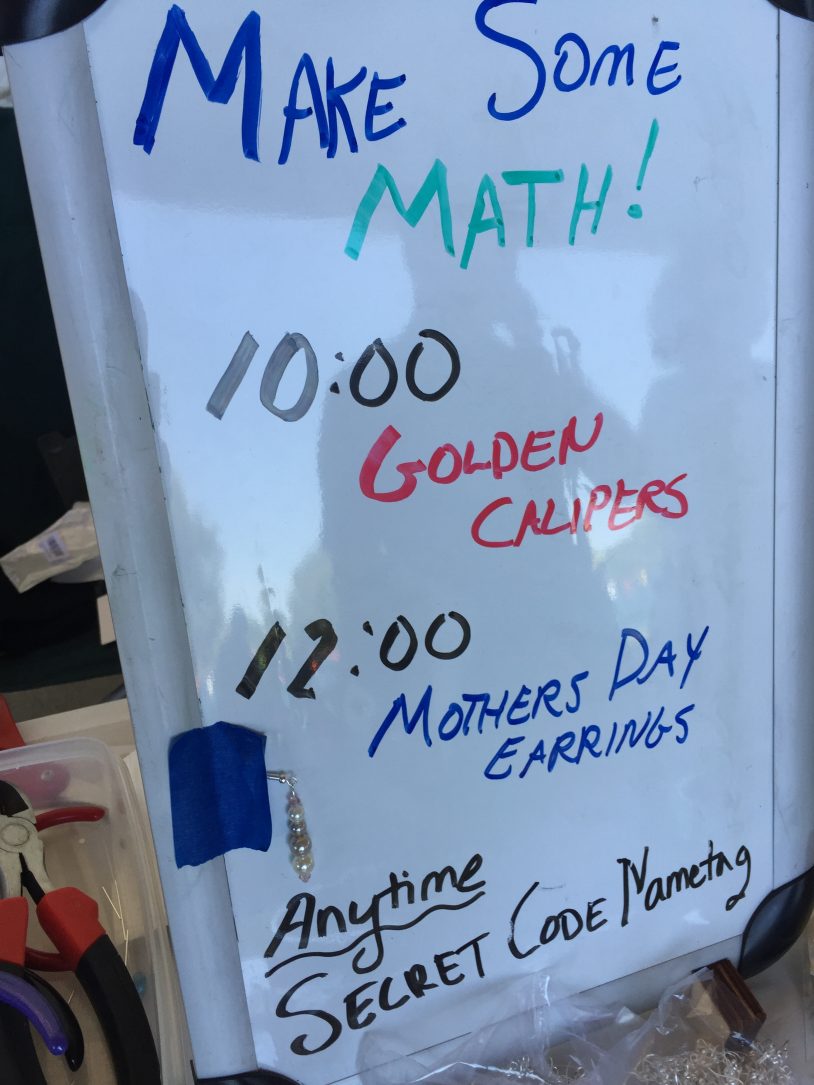 MAKE SOME
MATH!
10:00
GOLDEN
CALIPERS
12:00
MOTHERS DAY
EARRINGS
Anytime
SECRET CODE Nametag